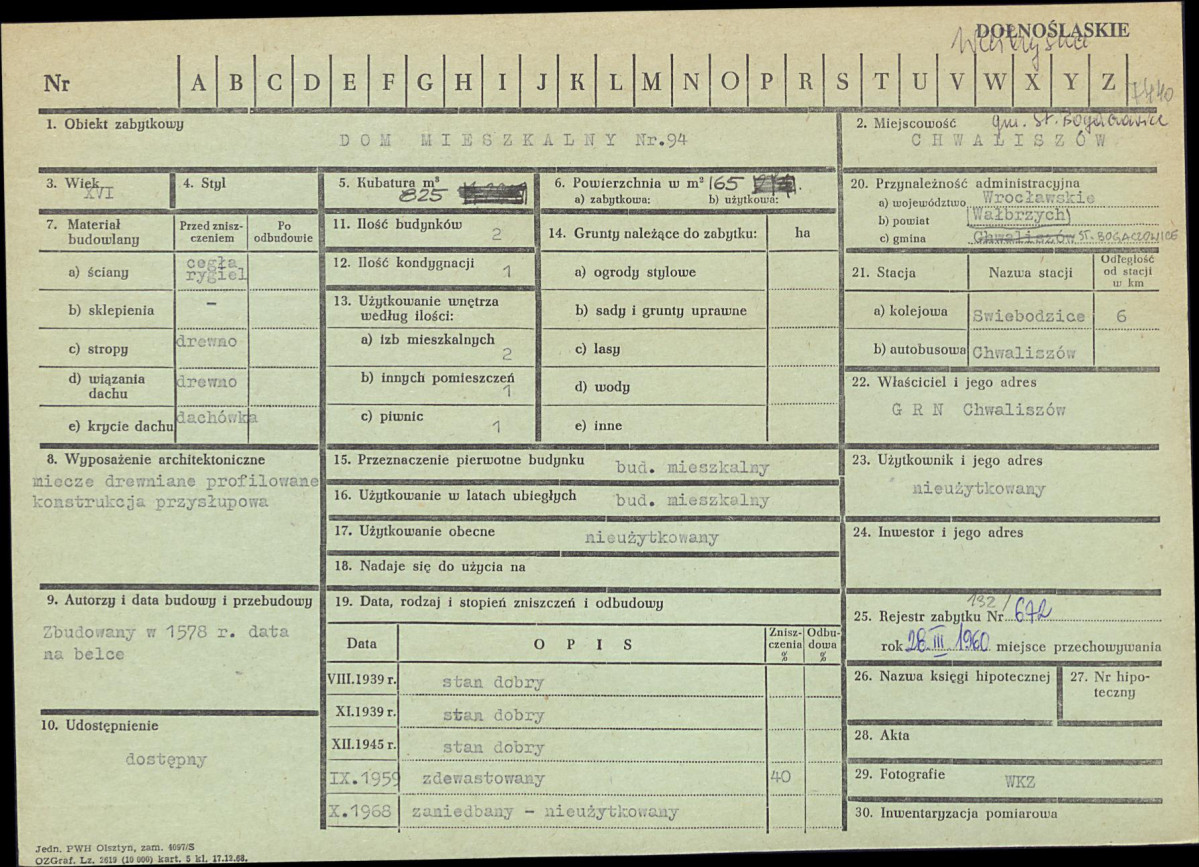 DOLNOŚLĄSKIE
Nr A B C D E F G H I J K L M N O P R S T U V W X Y Z
7440
1. Obiekt zabytkowy
DOM MIESZKALNY Nr.94
2. Miejscowość gm. St. Bogaczowice
CHWALISZÓW
3. Wiek
XVI
4. Styl
5. Kubatura m³
825
6. Powierzchnia w m² 165
a) zabytkowa: b) użytkowa:
20. Przynależność administracyjna
a) województwo Wrocławskie
b) powiat Wałbrzych
c) gmina Chwaliszów ST. BOGACZOWICE
7. Materiał budowlany
Przed zniszczeniem
Po odbudowie
a) ściany cegła rygiel
b) sklepienia –
c) stropy drewno
d) wiązania dachu drewno
e) krycie dachu dachówka
11. Ilość budynków 2
12. Ilość kondygnacji 1
13. Użytkowanie wnętrza według ilości:
a) izb mieszkalnych 2
b) innych pomieszczeń 1
c) piwnic 1
14. Grunty należące do zabytku: ha
a) ogrody stylowe
b) sady i grunty uprawne
c) lasy
d) wody
e) inne
21. Stacja Nazwa stacji Odległość od stacji w km
a) kolejowa Swiebodzice 6
b) autobusowa Chwaliszów
22. Właściciel i jego adres
G R N Chwaliszów
8. Wyposażenie architektoniczne
miecze drewniane profilowane
konstrukcja przysłupowa
15. Przeznaczenie pierwotne budynku bud. mieszkalny
16. Użytkowanie w latach ubiegłych bud. mieszkalny
17. Użytkowanie obecne nieużytkowany
18. Nadaje się do użycia na
23. Użytkownik i jego adres
nieużytkowany
24. Inwestor i jego adres
9. Autorzy i data budowy i przebudowy
Zbudowany w 1578 r. data
na belce
10. Udostępnienie
dostępny
19. Data, rodzaj i stopień zniszczeń i odbudowy
Data OPIS Zniszczenia % Odbudowa %
VIII.1939 r. stan dobry
XI.1939 r. stan dobry
XII.1945 r. stan dobry
IX.1959 zdewastowany 40
X.1968 zaniedbany – nieużytkowany
132/
25. Rejestr zabytku Nr 672
rok 28.III.1960 miejsce przechowywania
26. Nazwa księgi hipotecznej
27. Nr hipoteczny
28. Akta
29. Fotografie WKZ
30. Inwentaryzacja pomiarowa
Jedn. PWH Olsztyn, zam. 4097/S
OZGraf. Lz. 2619 (10 000) kart. 5 kl. 17.12.68.